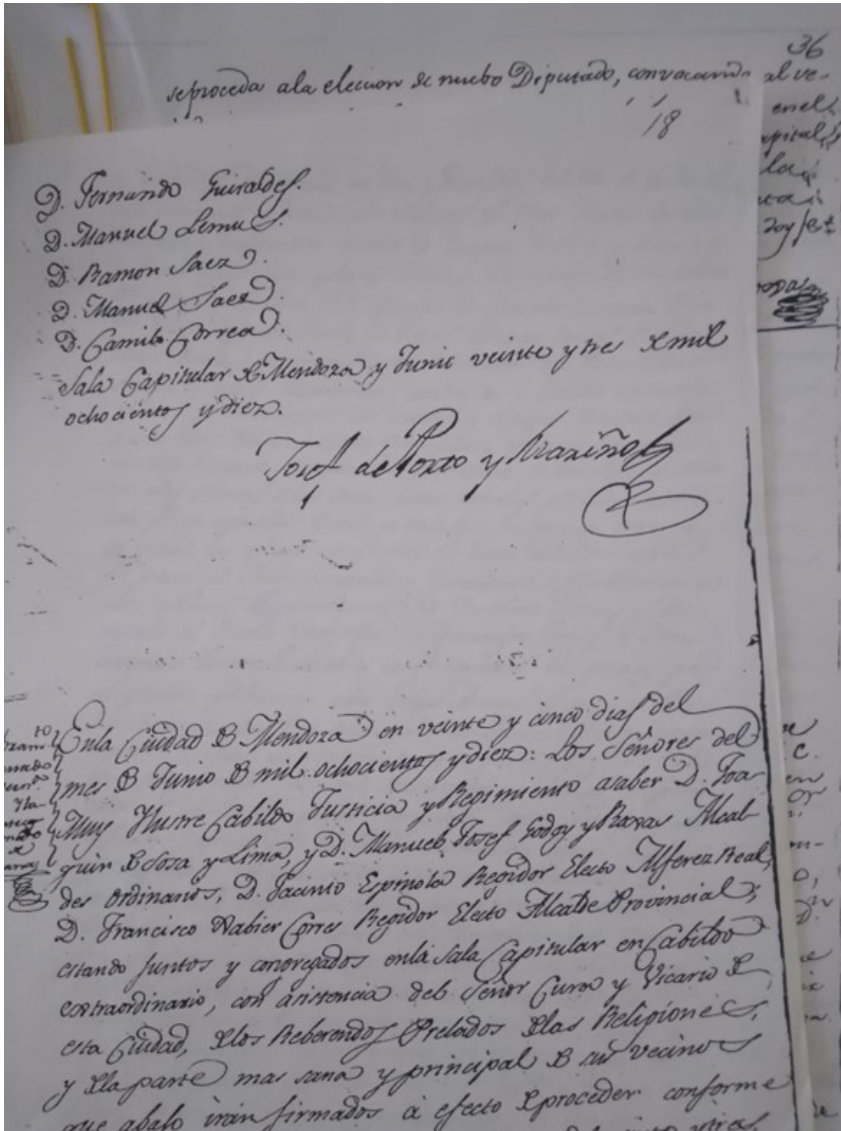 36
se proceda ala eleccion de nuebo Diputado, convocando al ve-
enel
18
D. Fernando Guiraldes.
D. Manuel Lemus.
D. Ramon Saez.
D. Manuel Saez.
D. Camilo Correa.
Sala Capitular de Mendoza y Junio veinte y tres de mil
ochocientos y diez.
Josef de Porto y Mariño
Enla Ciudad de Mendoza en veinte y cinco dias del
mes de Junio de mil ochocientos y diez: Los Señores del
Muy Ilustre Cabildo Justicia y Regimiento asaber D. Joa-
quin de Sosa y Lima, y D. Manuel Josef Godoy y Roxas Alcal-
des ordinarios, D. Jacinto Espinola Regidor Electo Alferez Real,
D. Francisco Xabier Correa Regidor Electo Alcalde Provincial,
estando juntos y congregados enla Sala Capitular en Cabildo
extraordinario, con asistencia del Señor Cura y Vicario de
esta Ciudad, delos Reberendos Prelados delas Religiones,
y dela parte mas sana y principal de sus vecinos
que abajo irán firmados á efecto de proceder conforme